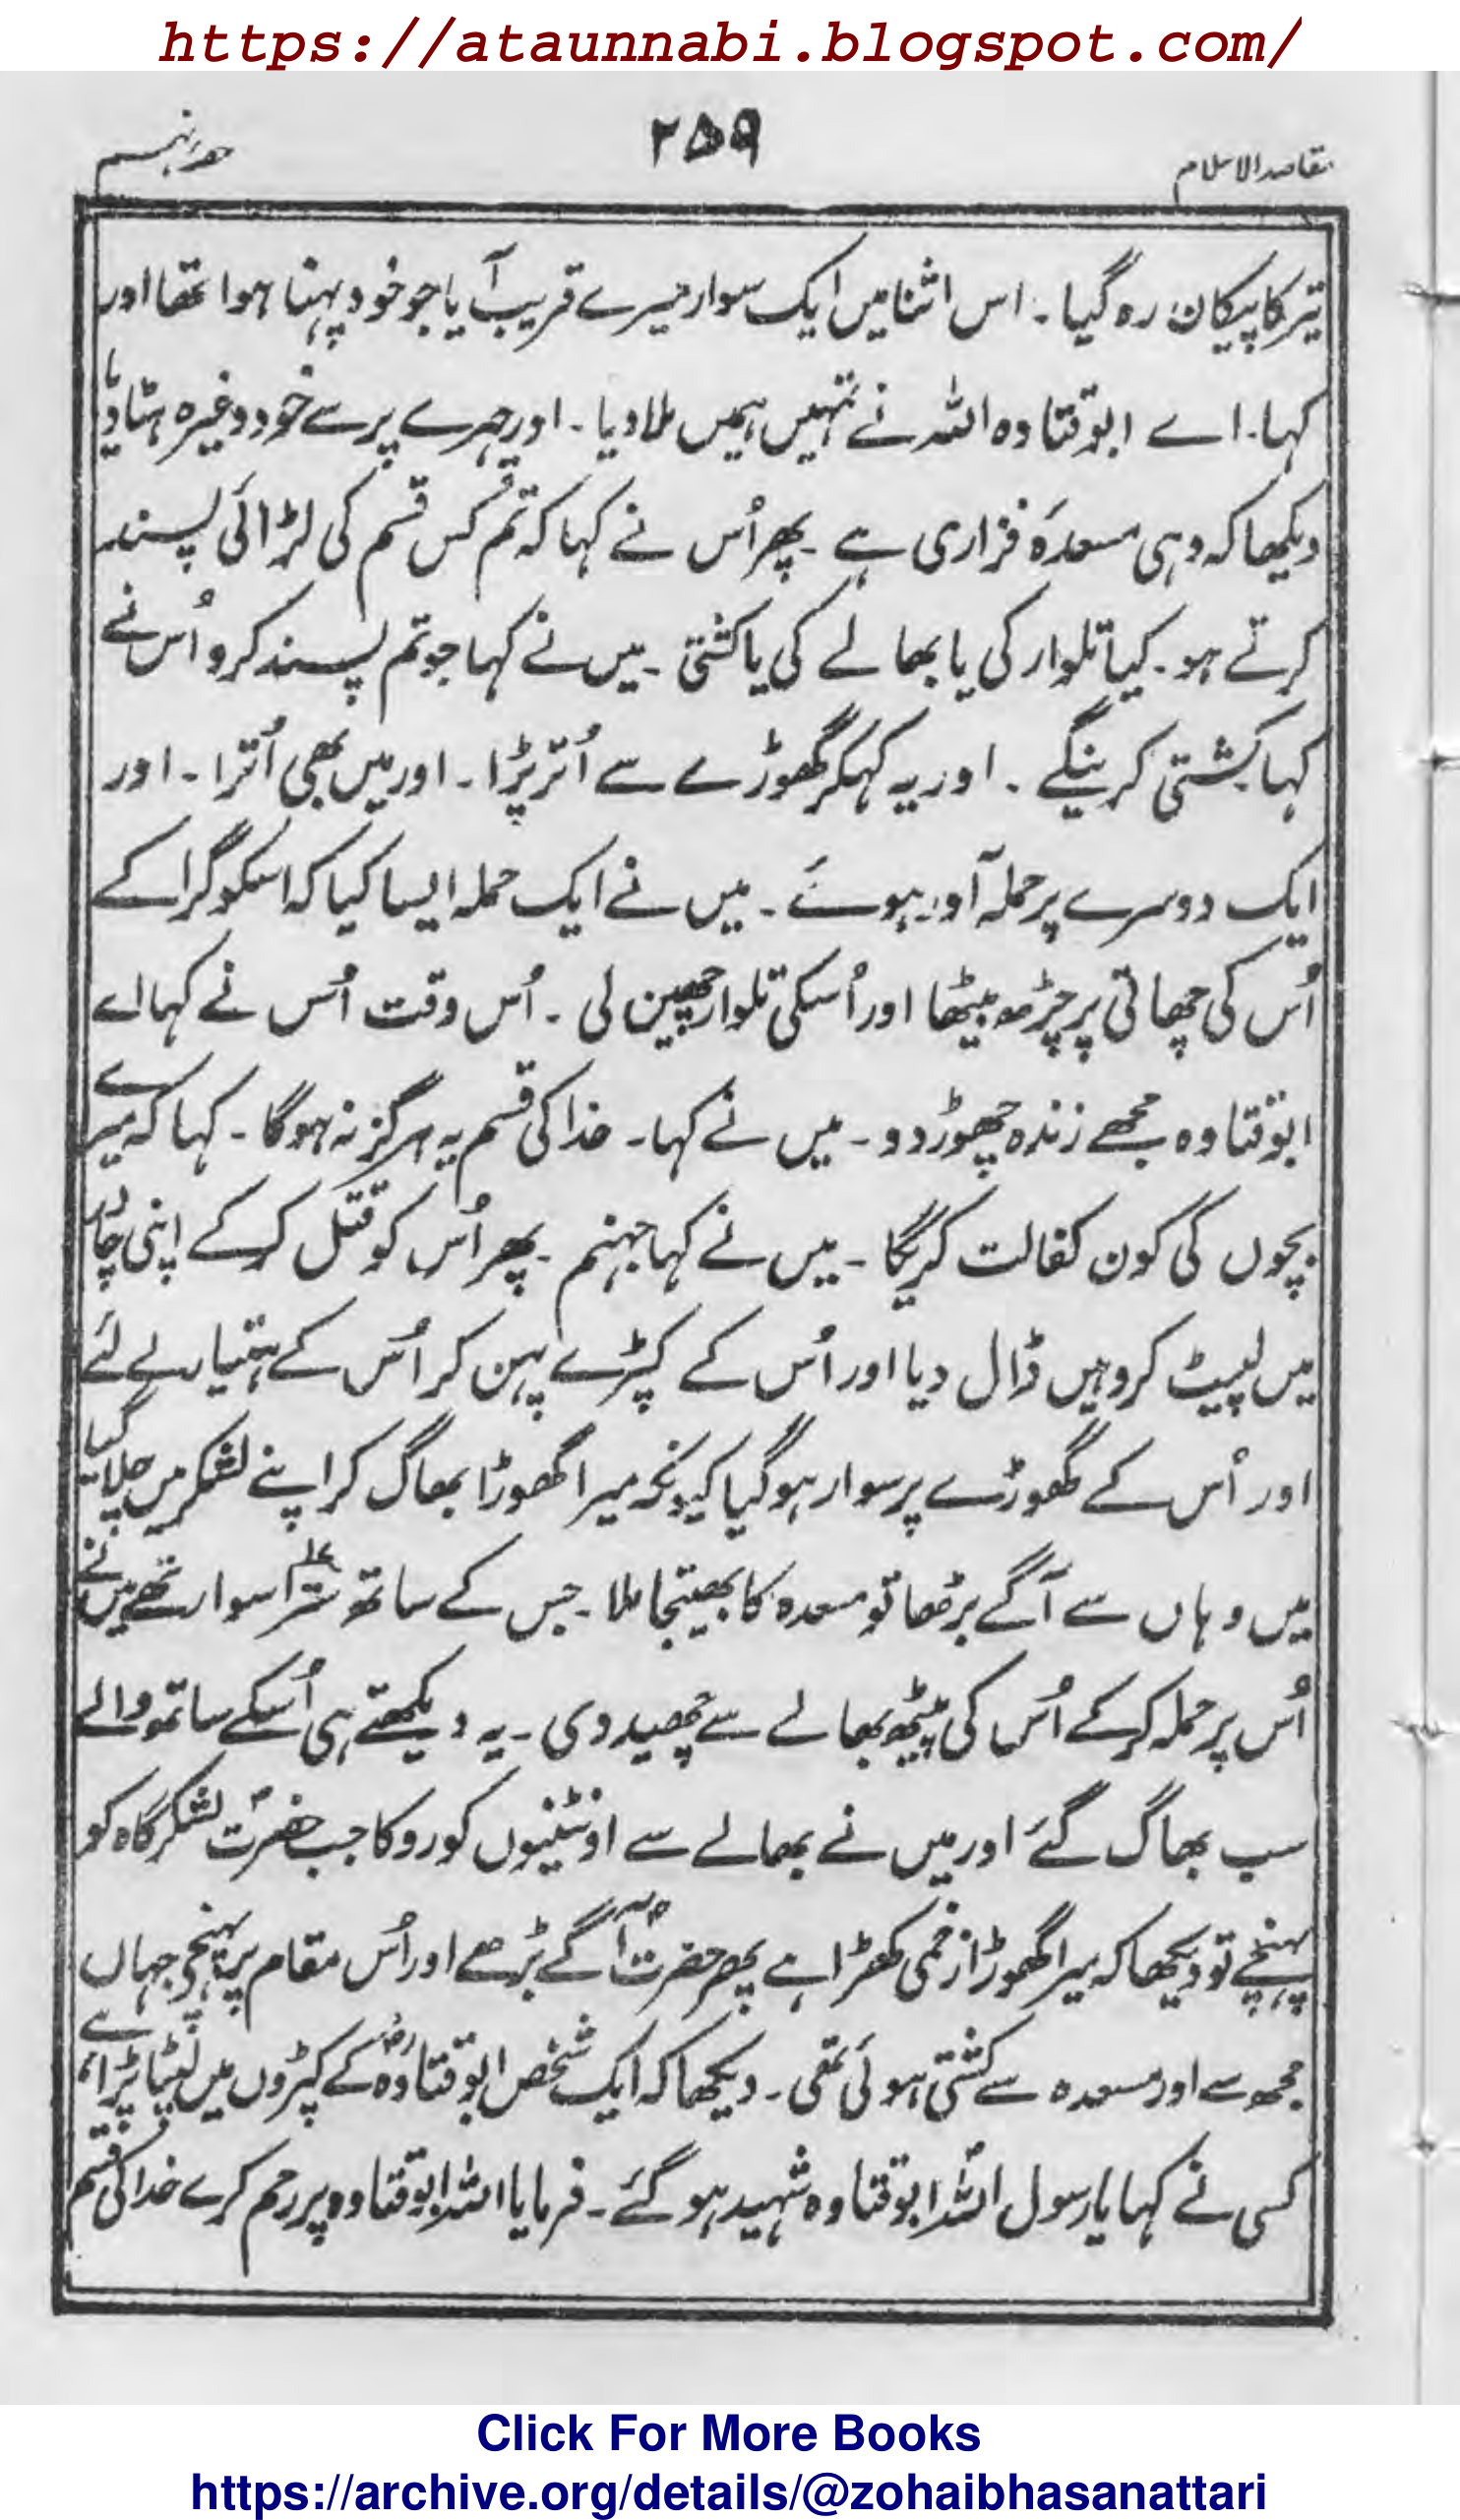 https://ataunnabi.blogspot.com/
مقاصد الاسلام
۲۵۹
حصہ نہم
تیر کا پیکان رہ گیا ۔ اس اثنا میں ایک سوار میرے قریب آیا جو خود پہنا ہوا تھا اور
کہا۔ اے ابو قتادہ اللہ نے تمہیں ہمیں ملا دیا ۔ اور چہرے پر سے خود وغیرہ ہٹا دیا
دیکھا کہ وہی مسعدۂ فزاری ہے ۔ پھر اُس نے کہا کہ تم کس قسم کی لڑائی پسند
کرتے ہو ۔ کیا تلوار کی یا بھالے کی یا کشتی ۔ میں نے کہا جو تم پسند کرو اُس نے
کہا کشتی کرینگے ۔ اور یہ کہکر گھوڑے سے اُتر پڑا ۔ اور میں بھی اُترا ۔ اور
ایک دوسرے پر حملہ آور ہوئے ۔ میں نے ایک حملہ ایسا کیا کہ اسکو گرا کے
اُس کی چھاتی پر چڑھ بیٹھا اور اُسکی تلوار چھین لی ۔ اُس وقت اُس نے کہا اے
ابو قتادہ مجھے زندہ چھوڑ دو ۔ میں نے کہا ۔ خدا کی قسم یہ ہرگز نہ ہوگا ۔ کہا کہ میرے
بچوں کی کون کفالت کریگا ۔ میں نے کہا جہنم ۔ پھر اُس کو قتل کر کے اپنی چادر
میں لپیٹ کر وہیں ڈال دیا اور اُس کے کپڑے پہن کر اُس کے ہتیار لے لئے
اور اُس کے گھوڑے پر سوار ہو گیا کیونکہ میرا گھوڑا بھاگ کر اپنے لشکر میں چلا گیا
میں وہاں سے آگے بڑھا تو مسعدہ کا بھیتجا ملا ۔ جس کے ساتھ سترا سوار تھے میں نے
اُس پر حملہ کر کے اُس کی پیٹھ بھالے سے چھید دی ۔ یہ دیکھتے ہی اُسکے ساتھ والے
سب بھاگ گئے اور میں نے بھالے سے اونٹنیوں کو روکا جب حضرتؐ لشکر گاہ کو
پہنچے تو دیکھا کہ میرا گھوڑا زخمی کھڑا ہے پھر حضرتؐ آگے بڑھے اور اُس مقام پر پہنچے جہاں
مجھ سے اور مسعدہ سے کشتی ہوئی تھی ۔ دیکھا کہ ایک شخص ابو قتادہؓ کے کپڑوں میں لپٹا پڑا ہے
کسی نے کہا یا رسول اللہؐ ابو قتادہ شہید ہو گئے ۔ فرمایا اللہ ابو قتادہ پر رحم کرے خدا کی قسم
Click For More Books
https://archive.org/details/@zohaibhasanattari